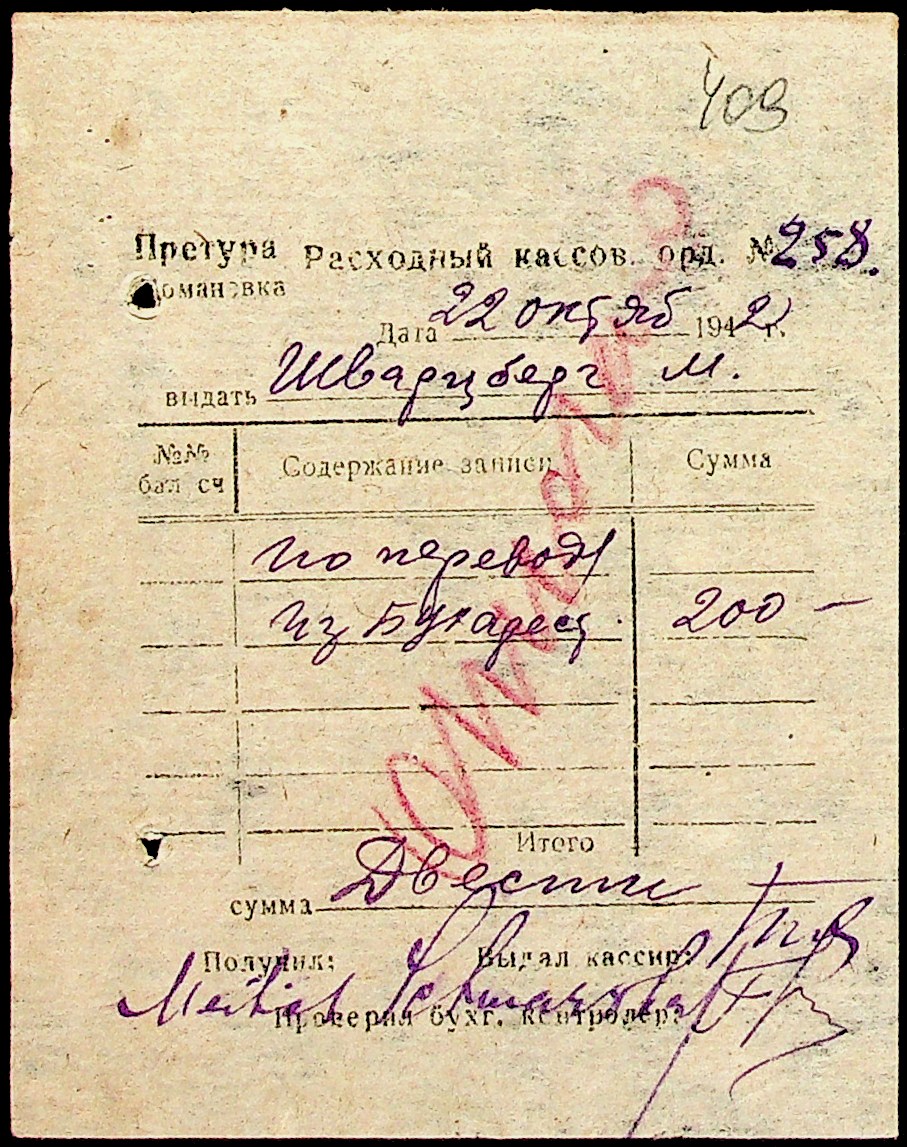 409
Претура Расходный кассов. орд. № 258.
Домановка
Дата 22 октяб 1942 г.
выдать Шварцберг М.
№№ бал сч Содержание записи Сумма
по переводу
из Бухарест 200 —
Итого
сумма Двести
Получил: Выдал кассир:
Schwarzberg
Проверил бухг. контролер: